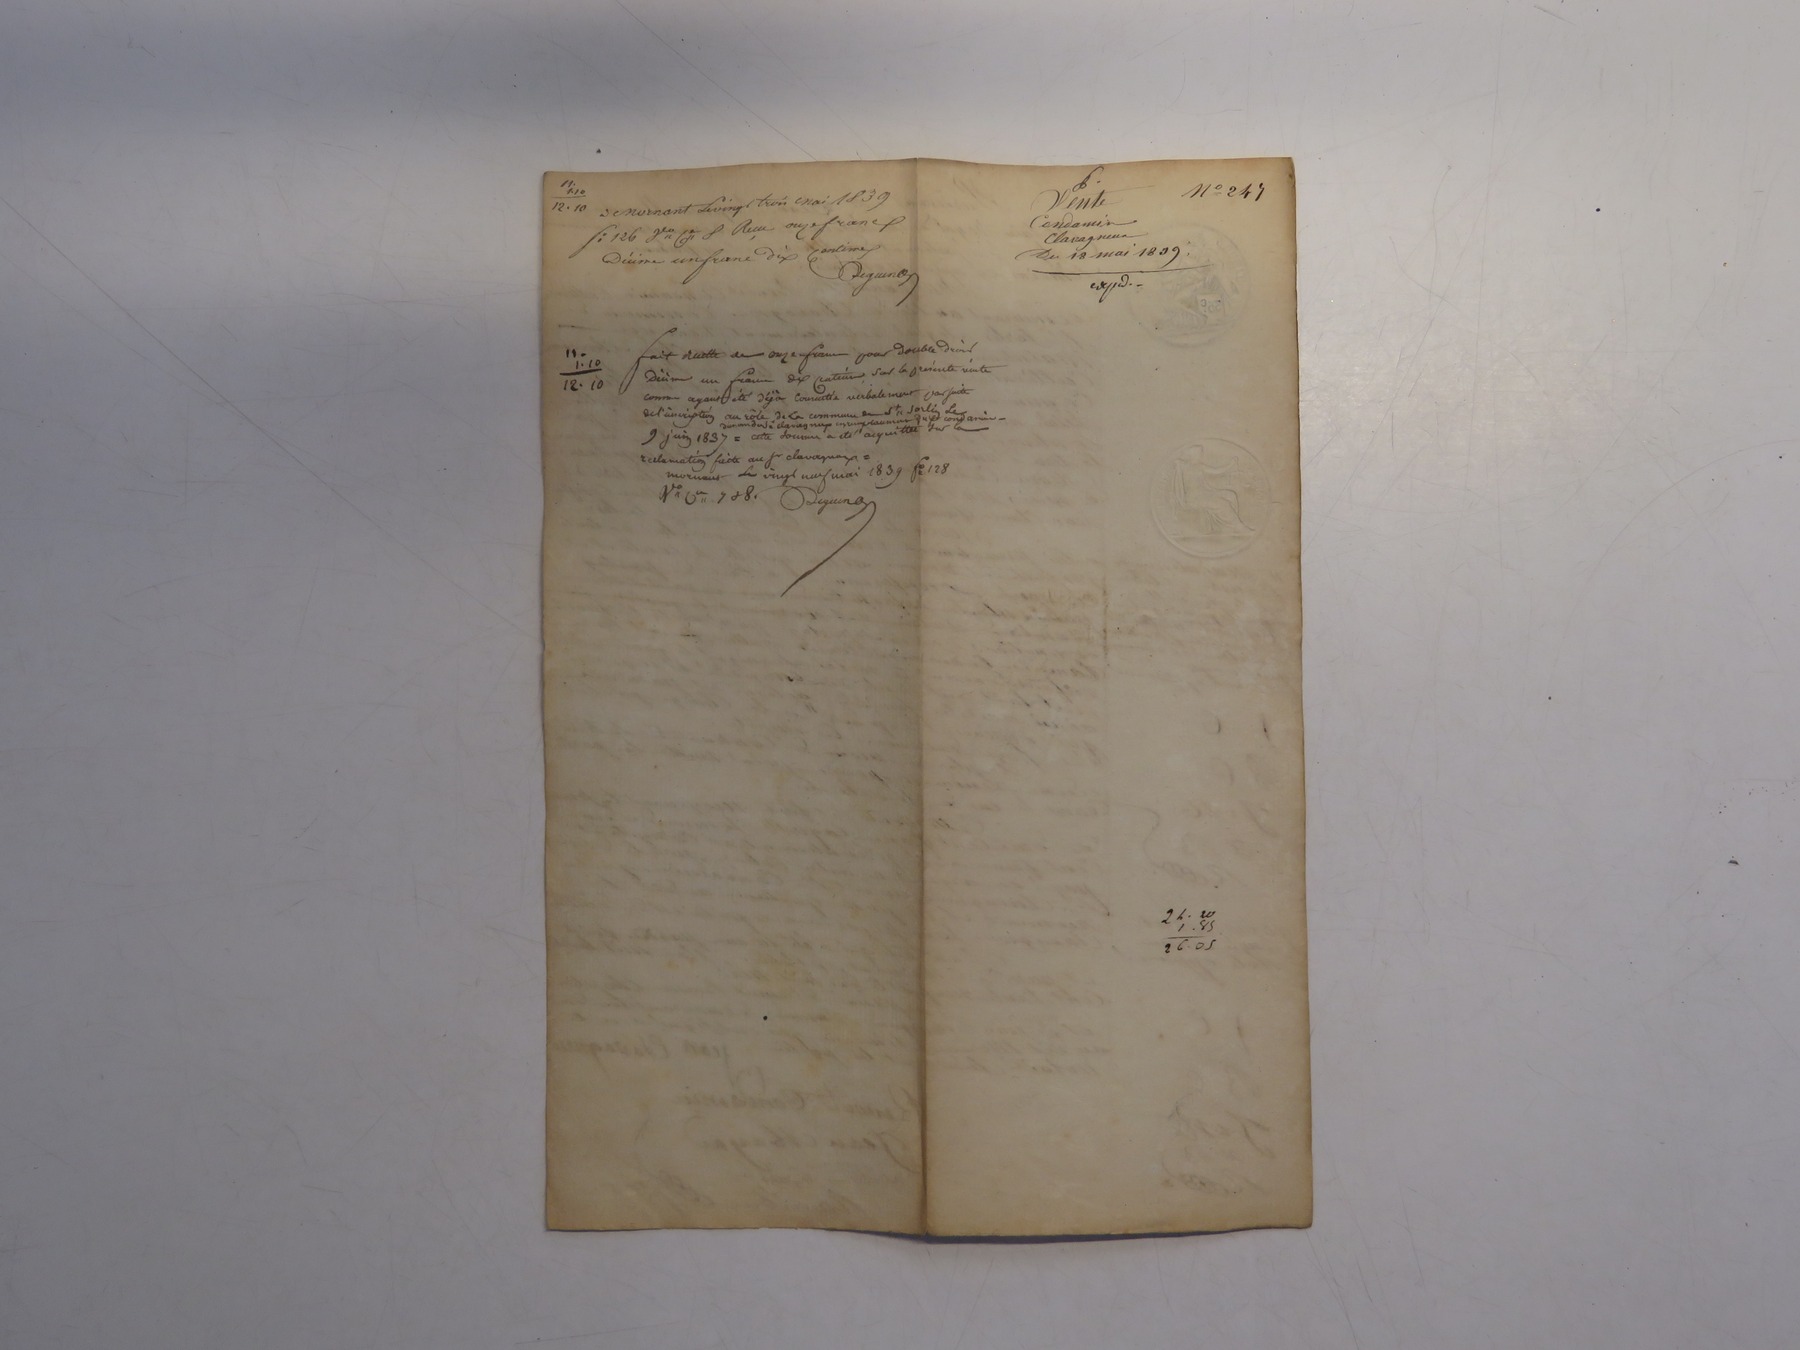 11.
1.10
12.10
de mornant le vingt trois mai 1839
f° 126 r° Reçu onze francs
Décime un franc dix centimes
Peguenot
11.
1.10
12.10
fait recette de onze francs pour double droit
Décime un franc dix centimes sur la présente vente
comme ayant été déjà consentie verbalement par suite
de l'inscription au rôle de la commune de St Sorlin le
9 juin 1837 = cette somme a été acquittée sur la
réclamation faite au sr clavagneux =
mornant le vingt neuf mai 1839 f° 128
788.
N° 247
Vente
Condamin
Clavagneux
Du 18 mai 1839.
expd.
24.20
1.85
26.05